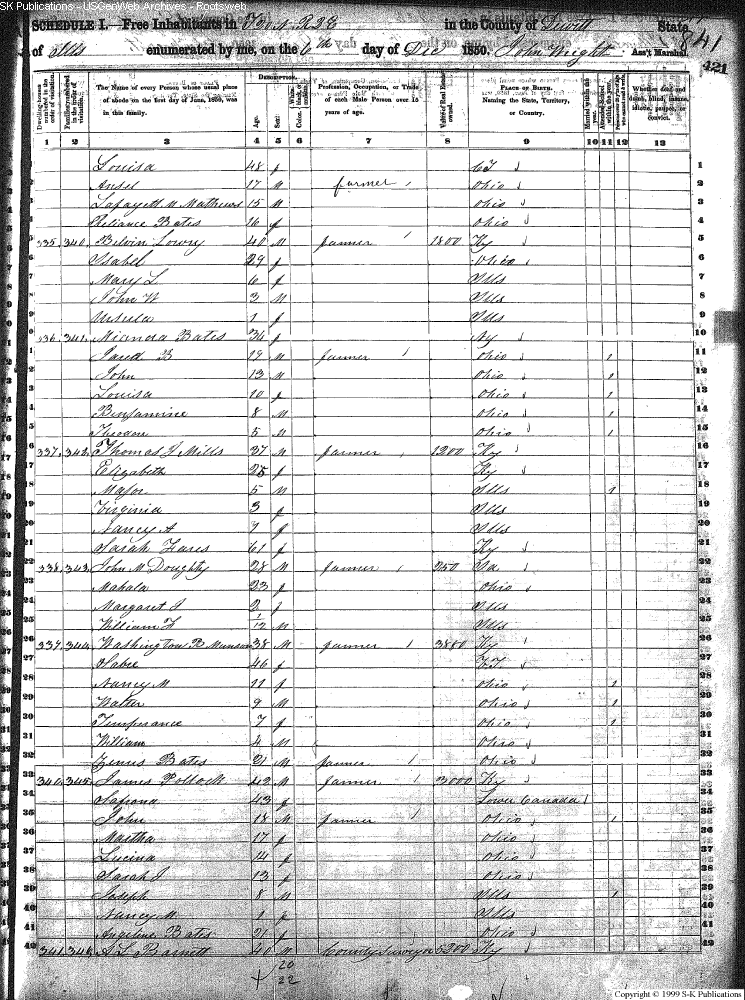 SK Publications - USGenWeb Archives - Rootsweb
SCHEDULE I. Free Inhabitants in T 20 N. R 2 E in the County of Dewitt State
of Ills enumerated by me, on the 6th day of Dec 1850. John Wright Ass't Marshal.
841
421
Dwelling-houses numbered in the order of visitation.
Families numbered in the order of visitation.
The Name of every Person whose usual place of abode on the first day of June, 1850, was in this family.
Description.
Age.
Sex.
Color, White, black, or mulatto.
Profession, Occupation, or Trade of each Male Person over 15 years of age.
Value of Real Estate owned.
Place of Birth. Naming the State, Territory, or Country.
Married within the year.
Whether deaf and dumb, blind, insane, idiotic, pauper, or convict.
1 2 3 4 5 6 7 8 9 10 11 12 13
1 Louisa 48 f CT 1
2 Ansel 17 M farmer Ohio 2
3 Lafayett M Mathews 15 M Ohio 3
4 Reliance Bates 16 f Ohio 4
5 335 340 Belvin Lowry 40 M farmer 1800 Ky 5
6 Isabel 29 f Ohio 6
7 Mary L 6 f Ills 7
8 John W 3 M Ills 8
9 Ursula 1 f Ills 9
10 336 341 Mianda Bates 34 f Ny 10
11 Jared B 19 M farmer Ohio 1 11
12 John 13 M Ohio 1 12
13 Louisa 10 f Ohio 1 13
14 Benjamine 8 M Ohio 1 14
15 Theodore 5 M Ohio 1 15
16 337 342 Thomas J Mills 37 M farmer 1200 Ky 16
17 Elizabeth 25 f Ky 17
18 Major 5 M Ills 1 18
19 Virginia 3 f Ills 19
20 Nancy A f Ills 20
21 Sarah 61 f Ky 21
22 338 343 John M Doughty 28 M farmer 250 22
23 Mahala 23 f Ohio 23
24 Margaret J 2 f Ills 24
25 William 1/12 M Ills 25
26 339 344 Washington B Munson 38 M farmer 3880 Ky 26
27 46 f VT 27
28 Nancy M 11 f Ohio 1 28
29 Walter 9 M Ohio 1 29
30 Temperance 7 f Ohio 1 30
31 William 4 M Ohio 31
32 Zenus Bates 21 M farmer Ohio 32
33 340 345 James Pollock 42 M farmer 3000 Ky 33
34 43 f Lower Canada 34
35 John 18 M farmer Ohio 1 35
36 Martha 17 f Ohio 36
37 Lucina 14 f Ohio 37
38 Sarah J 13 f Ohio 38
39 Joseph 8 M Ills 1 39
40 Nancy M 1 f Ills 40
41 Angeline Bates 21 f Ohio 41
42 341 346 A L Barnett 40 M County Surveyor 5200 Ky 42
20
22
Copyright © 1999 S-K Publications